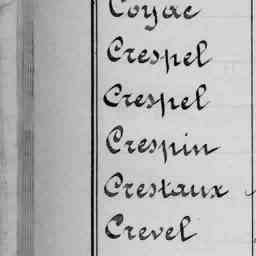 Coyac
Crespel
Crespel
Crespin
Crestaux
Crevel